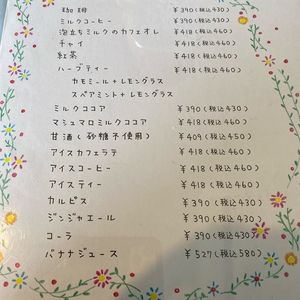 珈琲 ¥390(税込430)
ミルクコーヒー ¥390(税込430)
泡立ちミルクのカフェオレ ¥418(税込460)
チャイ ¥418(税込460)
紅茶 ¥418(税込460)
ハーブティー ¥418(税込460)
カモミール+レモングラス
スペアミント+レモングラス
ミルクココア ¥390(税込430)
マシュマロミルクココア ¥418(税込460)
甘酒(砂糖不使用) ¥409(税込450)
アイスカフェラテ ¥418(税込460)
アイスコーヒー ¥418(税込460)
アイスティー ¥418(税込460)
カルピス ¥390(税込430)
ジンジャエール ¥390(税込430)
コーラ ¥390(税込430)
バナナジュース ¥527(税込580)